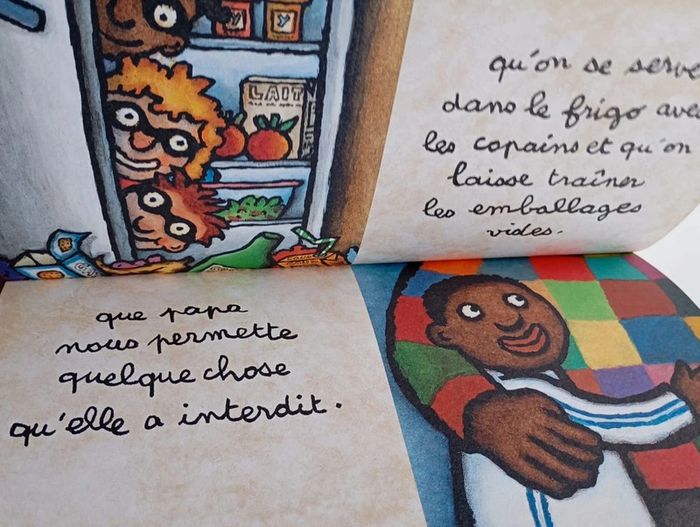 LAIT
qu'on se serve
dans le frigo avec
les copains et qu'on
laisse traîner
les emballages
vides.
que papa
nous permette
quelque chose
qu'elle a interdit.